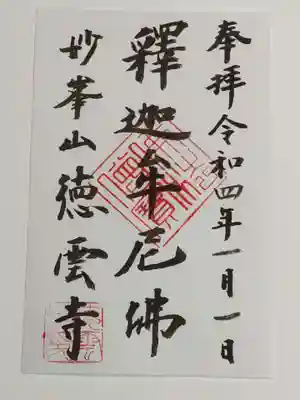 奉拝令和四年一月一日
釋迦牟尼佛
妙峯山徳雲寺